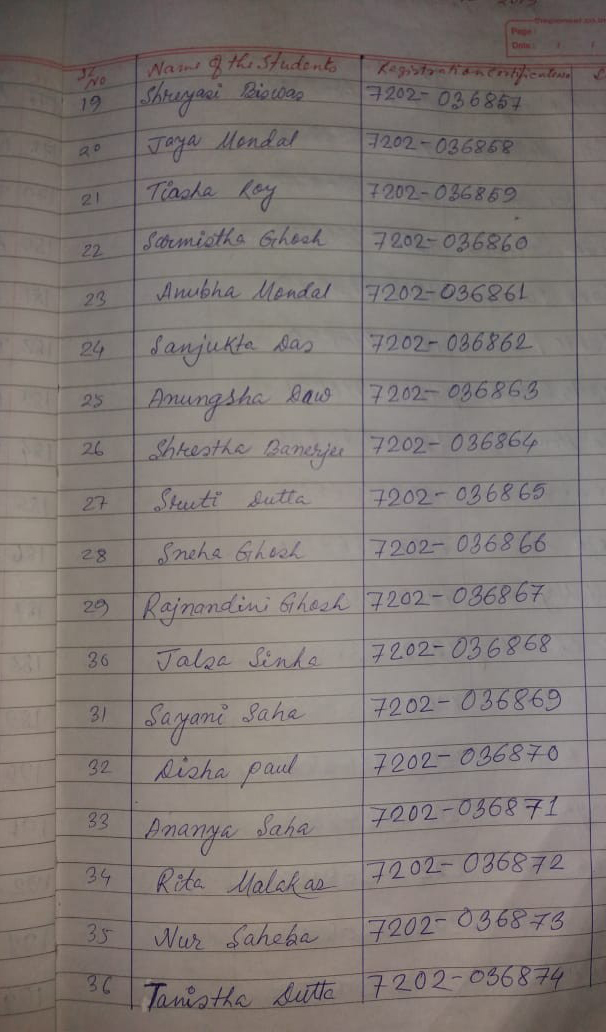 2013
Page :
Date : / /
SL No Name of the Students Registration certificate no
19 Shreyasi Biswas 7202-036857
20 Jaya Mondal 7202-036858
21 Tiasha Roy 7202-036859
22 Sarmistha Ghosh 7202-036860
23 Anubha Mondal 7202-036861
24 Sanjukta Das 7202-036862
25 Anungsha Daw 7202-036863
26 Shrestha Banerjee 7202-036864
27 Sruti Dutta 7202-036865
28 Sneha Ghosh 7202-036866
29 Rajnandini Ghosh 7202-036867
30 Jalsa Sinha 7202-036868
31 Sayani Saha 7202-036869
32 Disha paul 7202-036870
33 Ananya Saha 7202-036871
34 Rita Malakar 7202-036872
35 Nur Saheba 7202-036873
36 Tanistha Dutta 7202-036874